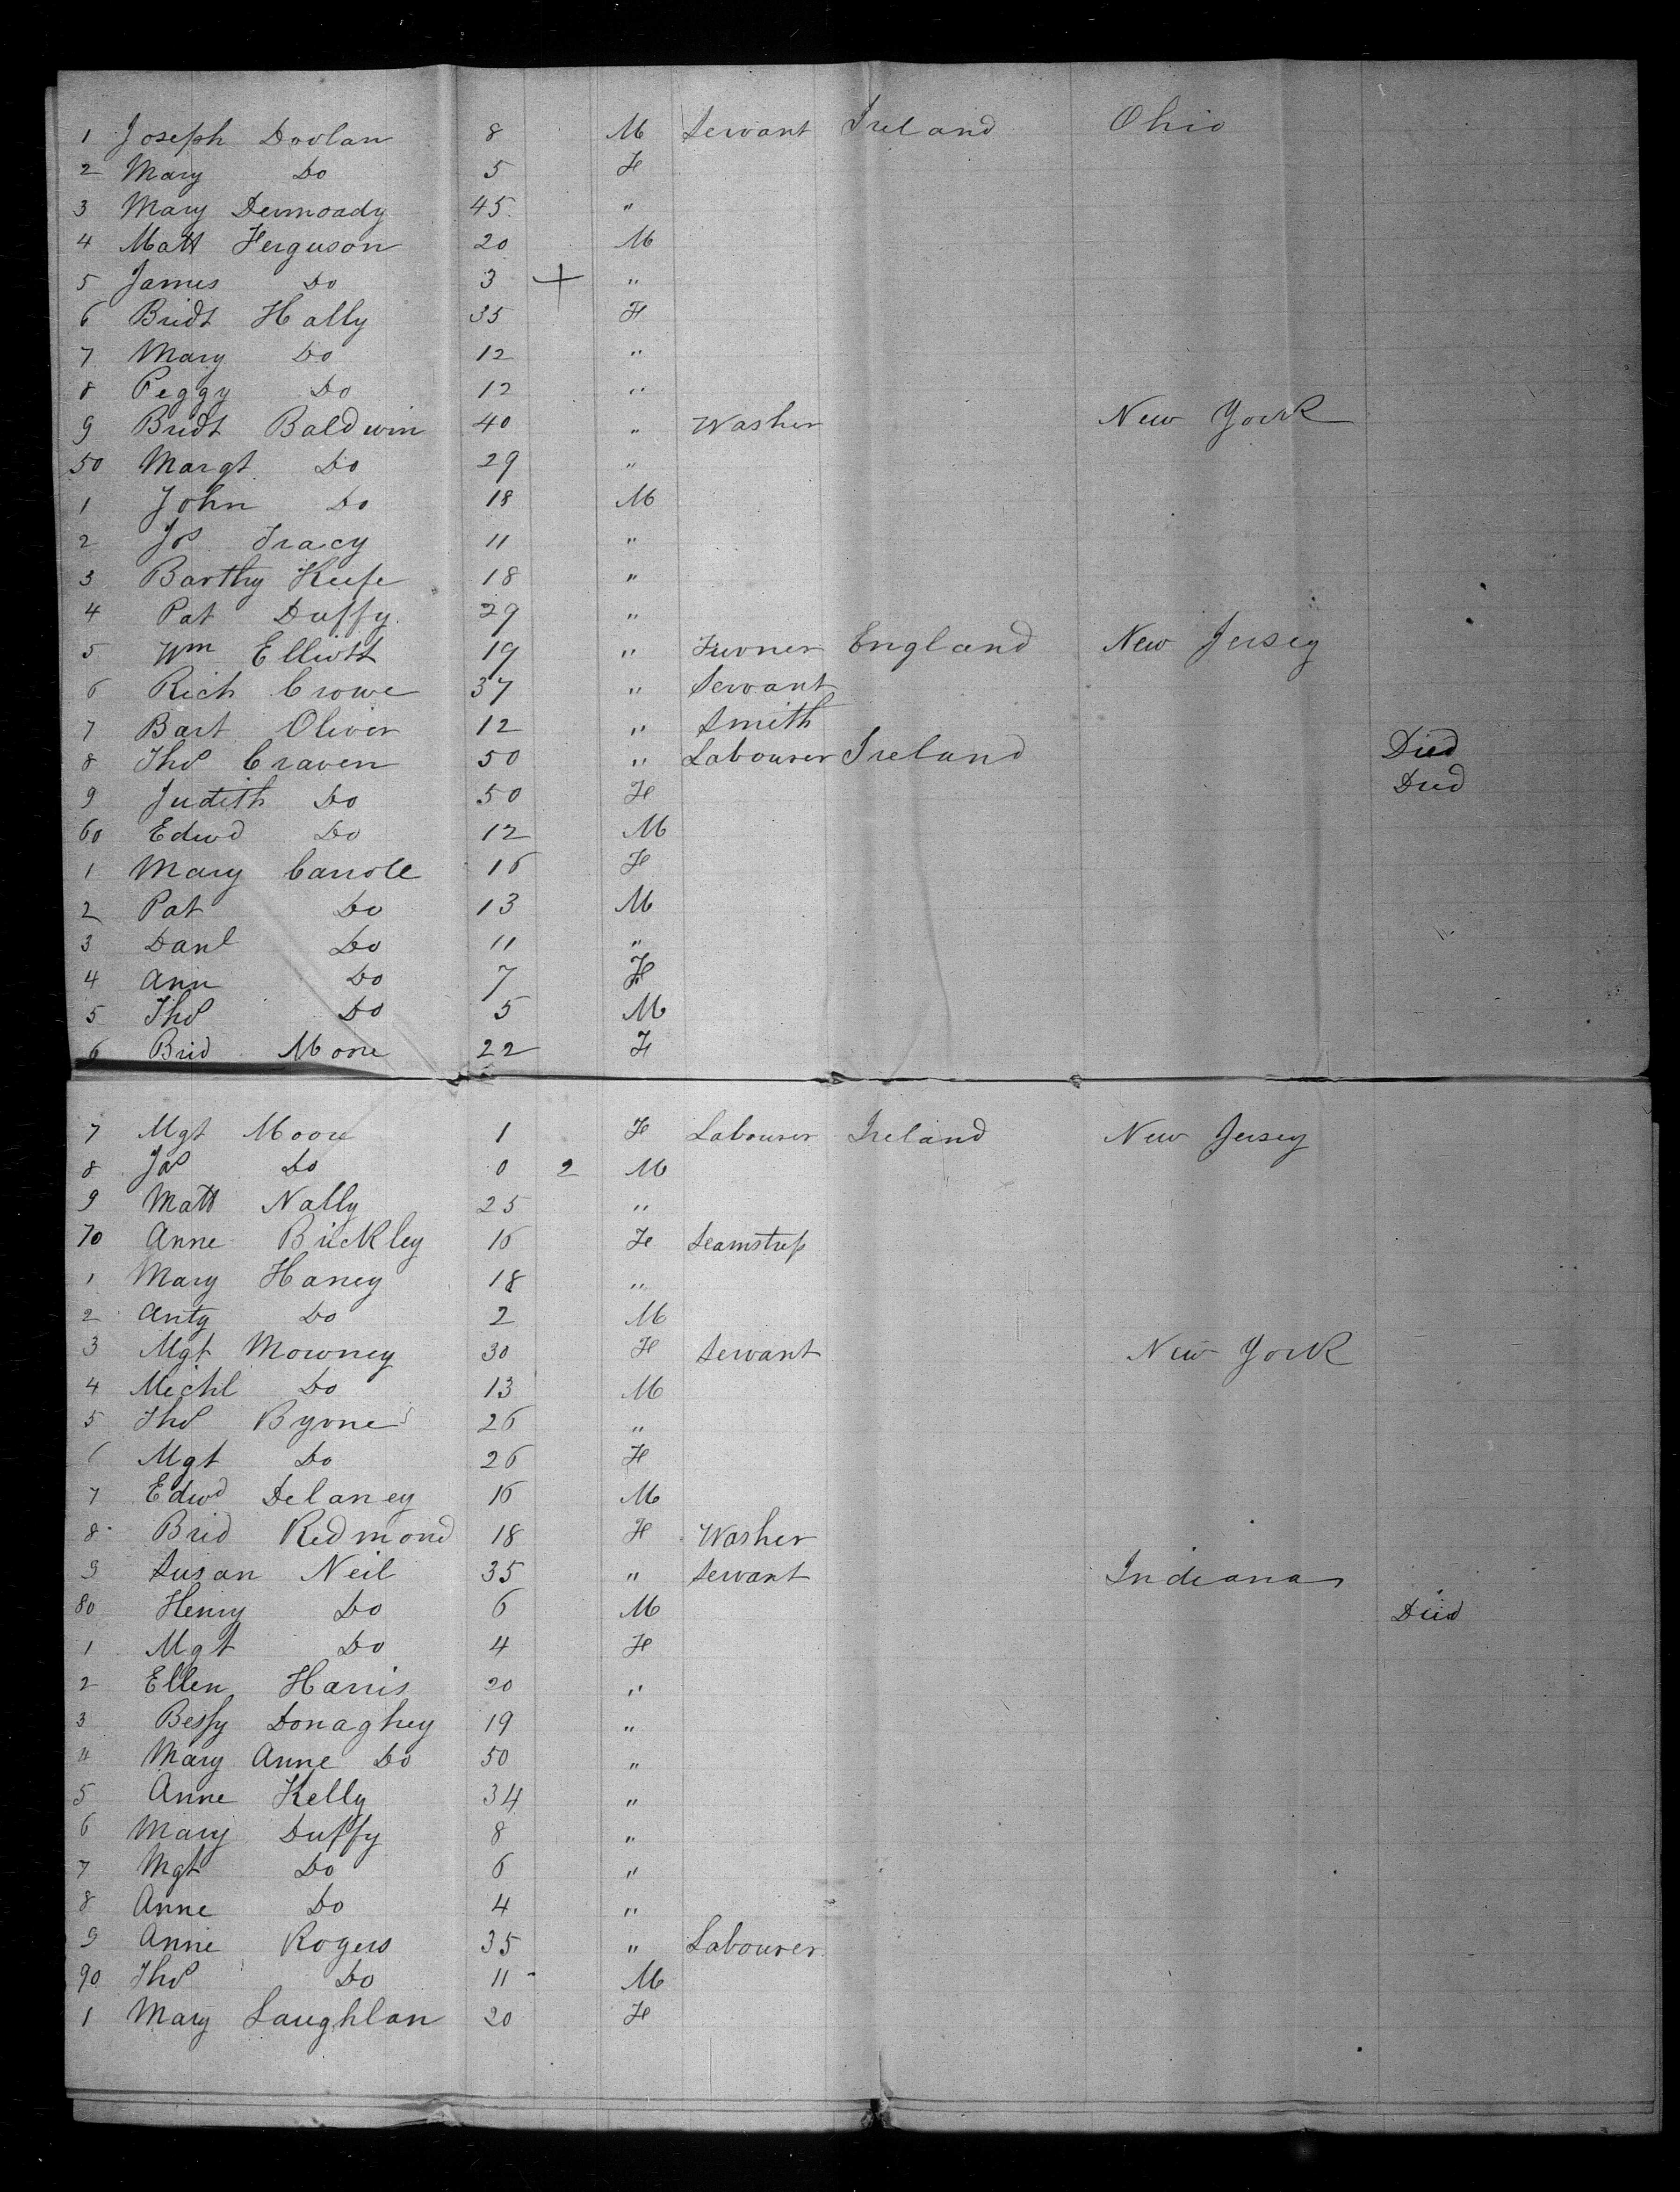 1 Joseph Doolan 8 M Servant Ireland Ohio
2 Mary Do 5 F
3 Mary Dermoady 45 "
4 Matt Ferguson 20 M
5 James Do 3 + "
6 Bridt Hally 35 F
7 Mary Do 12 "
8 Peggy Do 12 "
9 Bridt Baldwin 40 " Washer New York
50 Margt Do 29 "
1 John Do 18 M
2 Jos Tracy 11 "
3 Barthy Keefe 18 "
4 Pat Duffy 29 "
5 Wm Elliott 19 " Turner England New Jersey
6 Rich Crowe 37 " Servant
7 Bart Oliver 12 " Smith
8 Thos Craven 50 " Labourer Ireland Died
9 Judith Do 50 F Died
60 Edwd Do 12 M
1 Mary Carroll 16 F
2 Pat Do 13 M
3 Danl Do 11 "
4 Ann Do 7 F
5 Thos Do 5 M
6 Brid Mone 22 F
7 Mgt Moore 1 F Labourer Ireland New Jersey
8 Jos Do 0 2 M
9 Matt Nally 25 "
70 Anne Brickley 16 F Seamstress
1 Mary Haney 18 "
2 Anty Do 2 M
3 Mgt Mowney 30 F Servant New York
4 Michl Do 13 M
5 Thos Byrne 26 "
6 Mgt Do 26 F
7 Edwd Delaney 16 M
8 Brid Redmond 18 F Washer
9 Susan Neil 35 " Servant Indiana
80 Henry Do 6 M Died
1 Mgt Do 4 F
2 Ellen Harris 20 "
3 Bessy Donaghey 19 "
4 Mary Anne Do 50 "
5 Anne Kelly 34 "
6 Mary Duffy 8 "
7 Mgt Do 6 "
8 Anne Do 4 "
9 Anne Rogers 35 " Labourer
90 Thos Do 11 M
1 Mary Laughlan 20 F